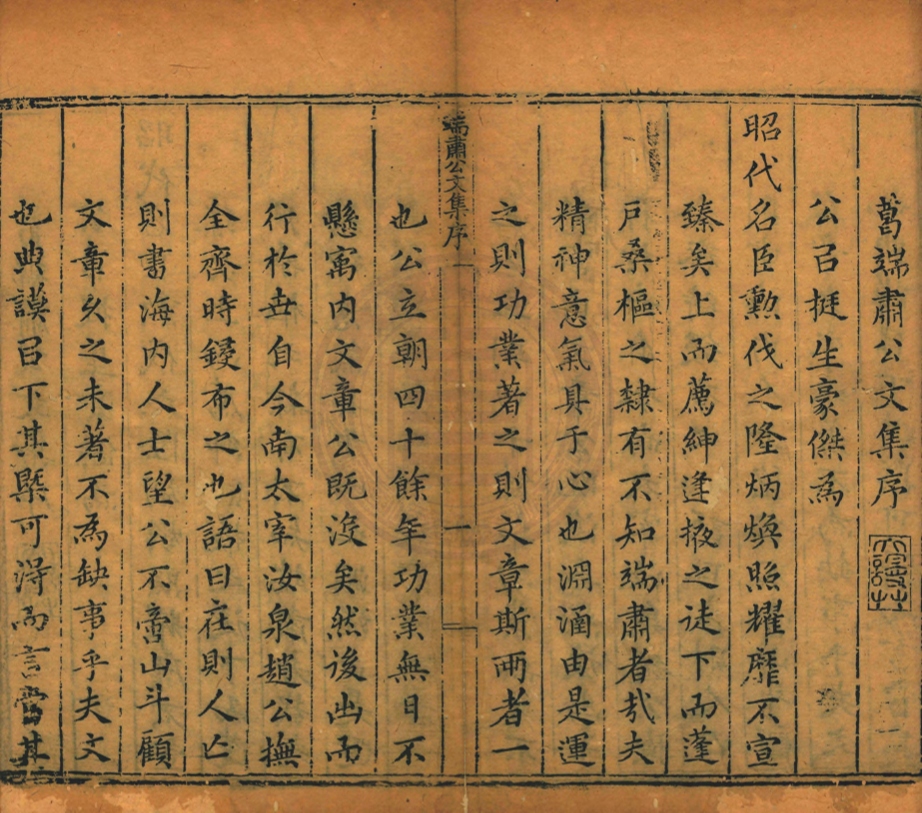 葛端肅公文集序
公㠯挺生豪傑為
昭代名臣勲伐之隆炳煥照耀靡不宣
臻矣上而薦紳逢掖之徒下而蓬
戶桑樞之隸有不知端肅者哉夫
精神意氣具于心也淵涵由是運
之則功業著之則文章斯兩者一
端肅公文集序 一
也公立朝四十餘年功業無日不
懸寓内文章公既没矣然後出而
行於世自今南太宰汝泉趙公撫
全齊時鋟布之也語曰在則人亡
則書海内人士望公不啻山斗顧
文章久之未著不為缺事乎夫文
也典謨㠯下其槩可得而言其